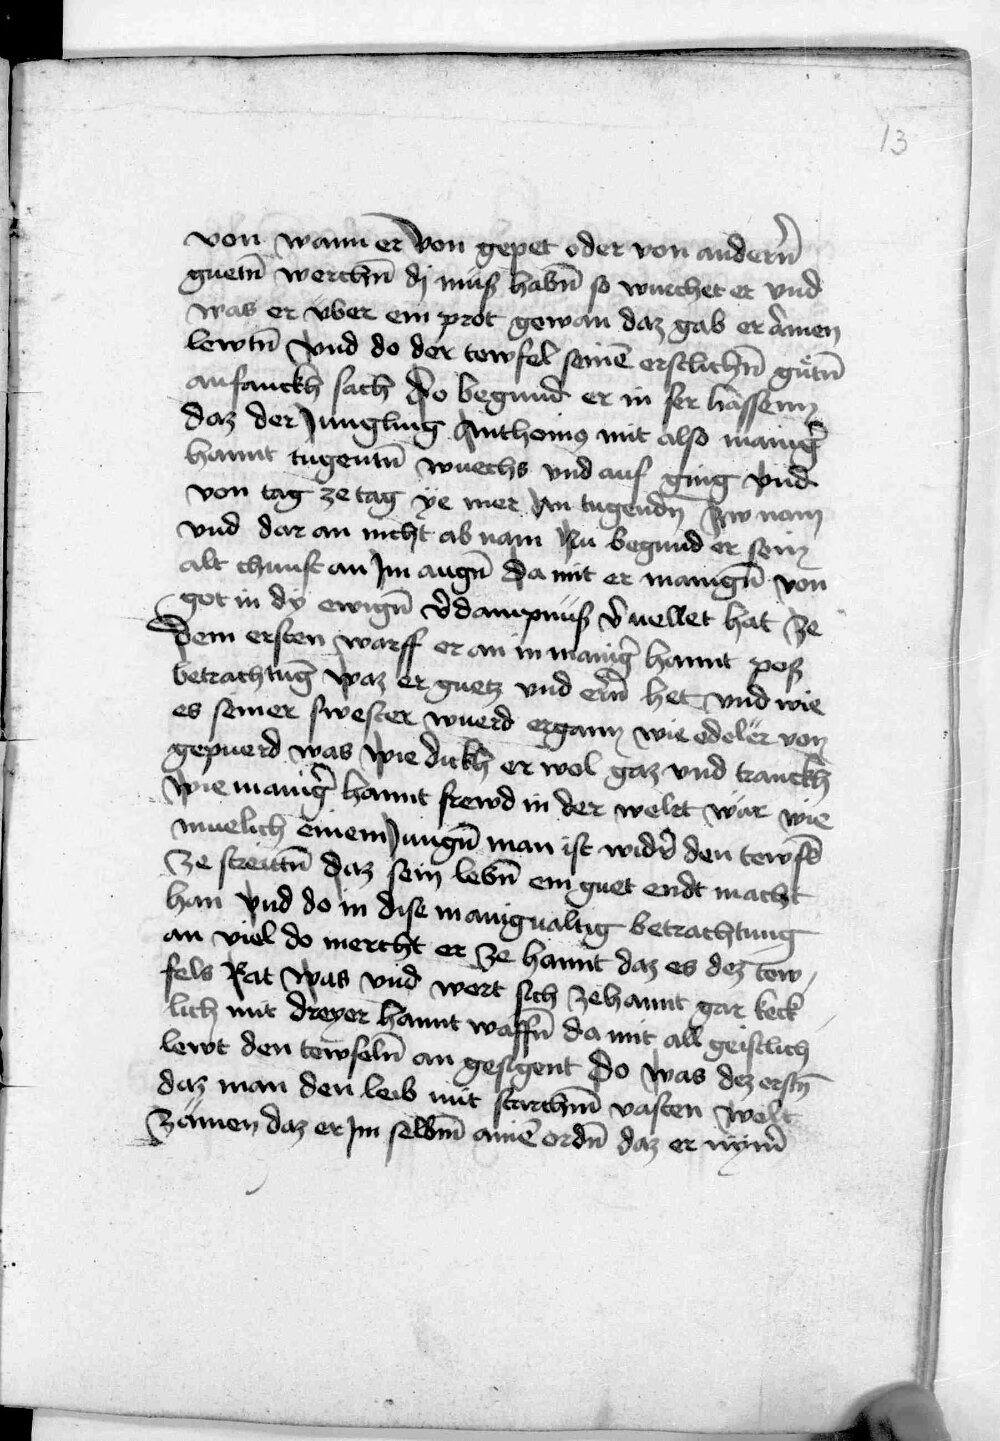 13
von wann er von gepet oder von andern̄
guetn̄ werchn̄ dj müß habn̄ so wurchet er vnd
was er vber ein prot gewan daz gab er armen
lewtn̄ vnd do der tewfel seinē erstlichn̄ gütn̄
anfanckh sach Do begund er in ser hassenn
daz der Jungling Anthonius mit also manig̉
hannt tugentn̄ wuechs vnd auf ging vnd
von tag ze tag ye mer An tugendn̄ Zw nam
vnd dar an nicht ab nam Nu begund er sein
alt chunst an Jm augn̄ da mit er manign̄ von
got in dy ewign̄ v̉dampnüß v̉uellet hat Ze
dem ersten warff er an in manig̉ hannt poß
betrachtūg waz er guetz vnd ern̄ het vnd wie
es seiner swester wuerd ergann wie edeler von
gepuerd was wie dickh er wol gaz vnd tranckh
wie manig̉ hannt frewd in der welt wär wie
muelich einem Jungn̄ man ist wid̉ den tewfel
ze streittn̄ daz sein lebn̄ ein guet endt macht
han vnd do in dise manigualtig betrachtung
an viel do mercht er ze hannt daz es dez tew
fels Rat was vnd wert sich zehannt gar keck
lich mit dreyer hannt waffn̄ da mit all geistlich
lewt den tewfeln̄ an gesigent Do was dez erstn̄
daz man den leib mit starchn̄ vasten wolt
zämen daz er Jm selbm̄ ainē ordn̄ daz er nym̉